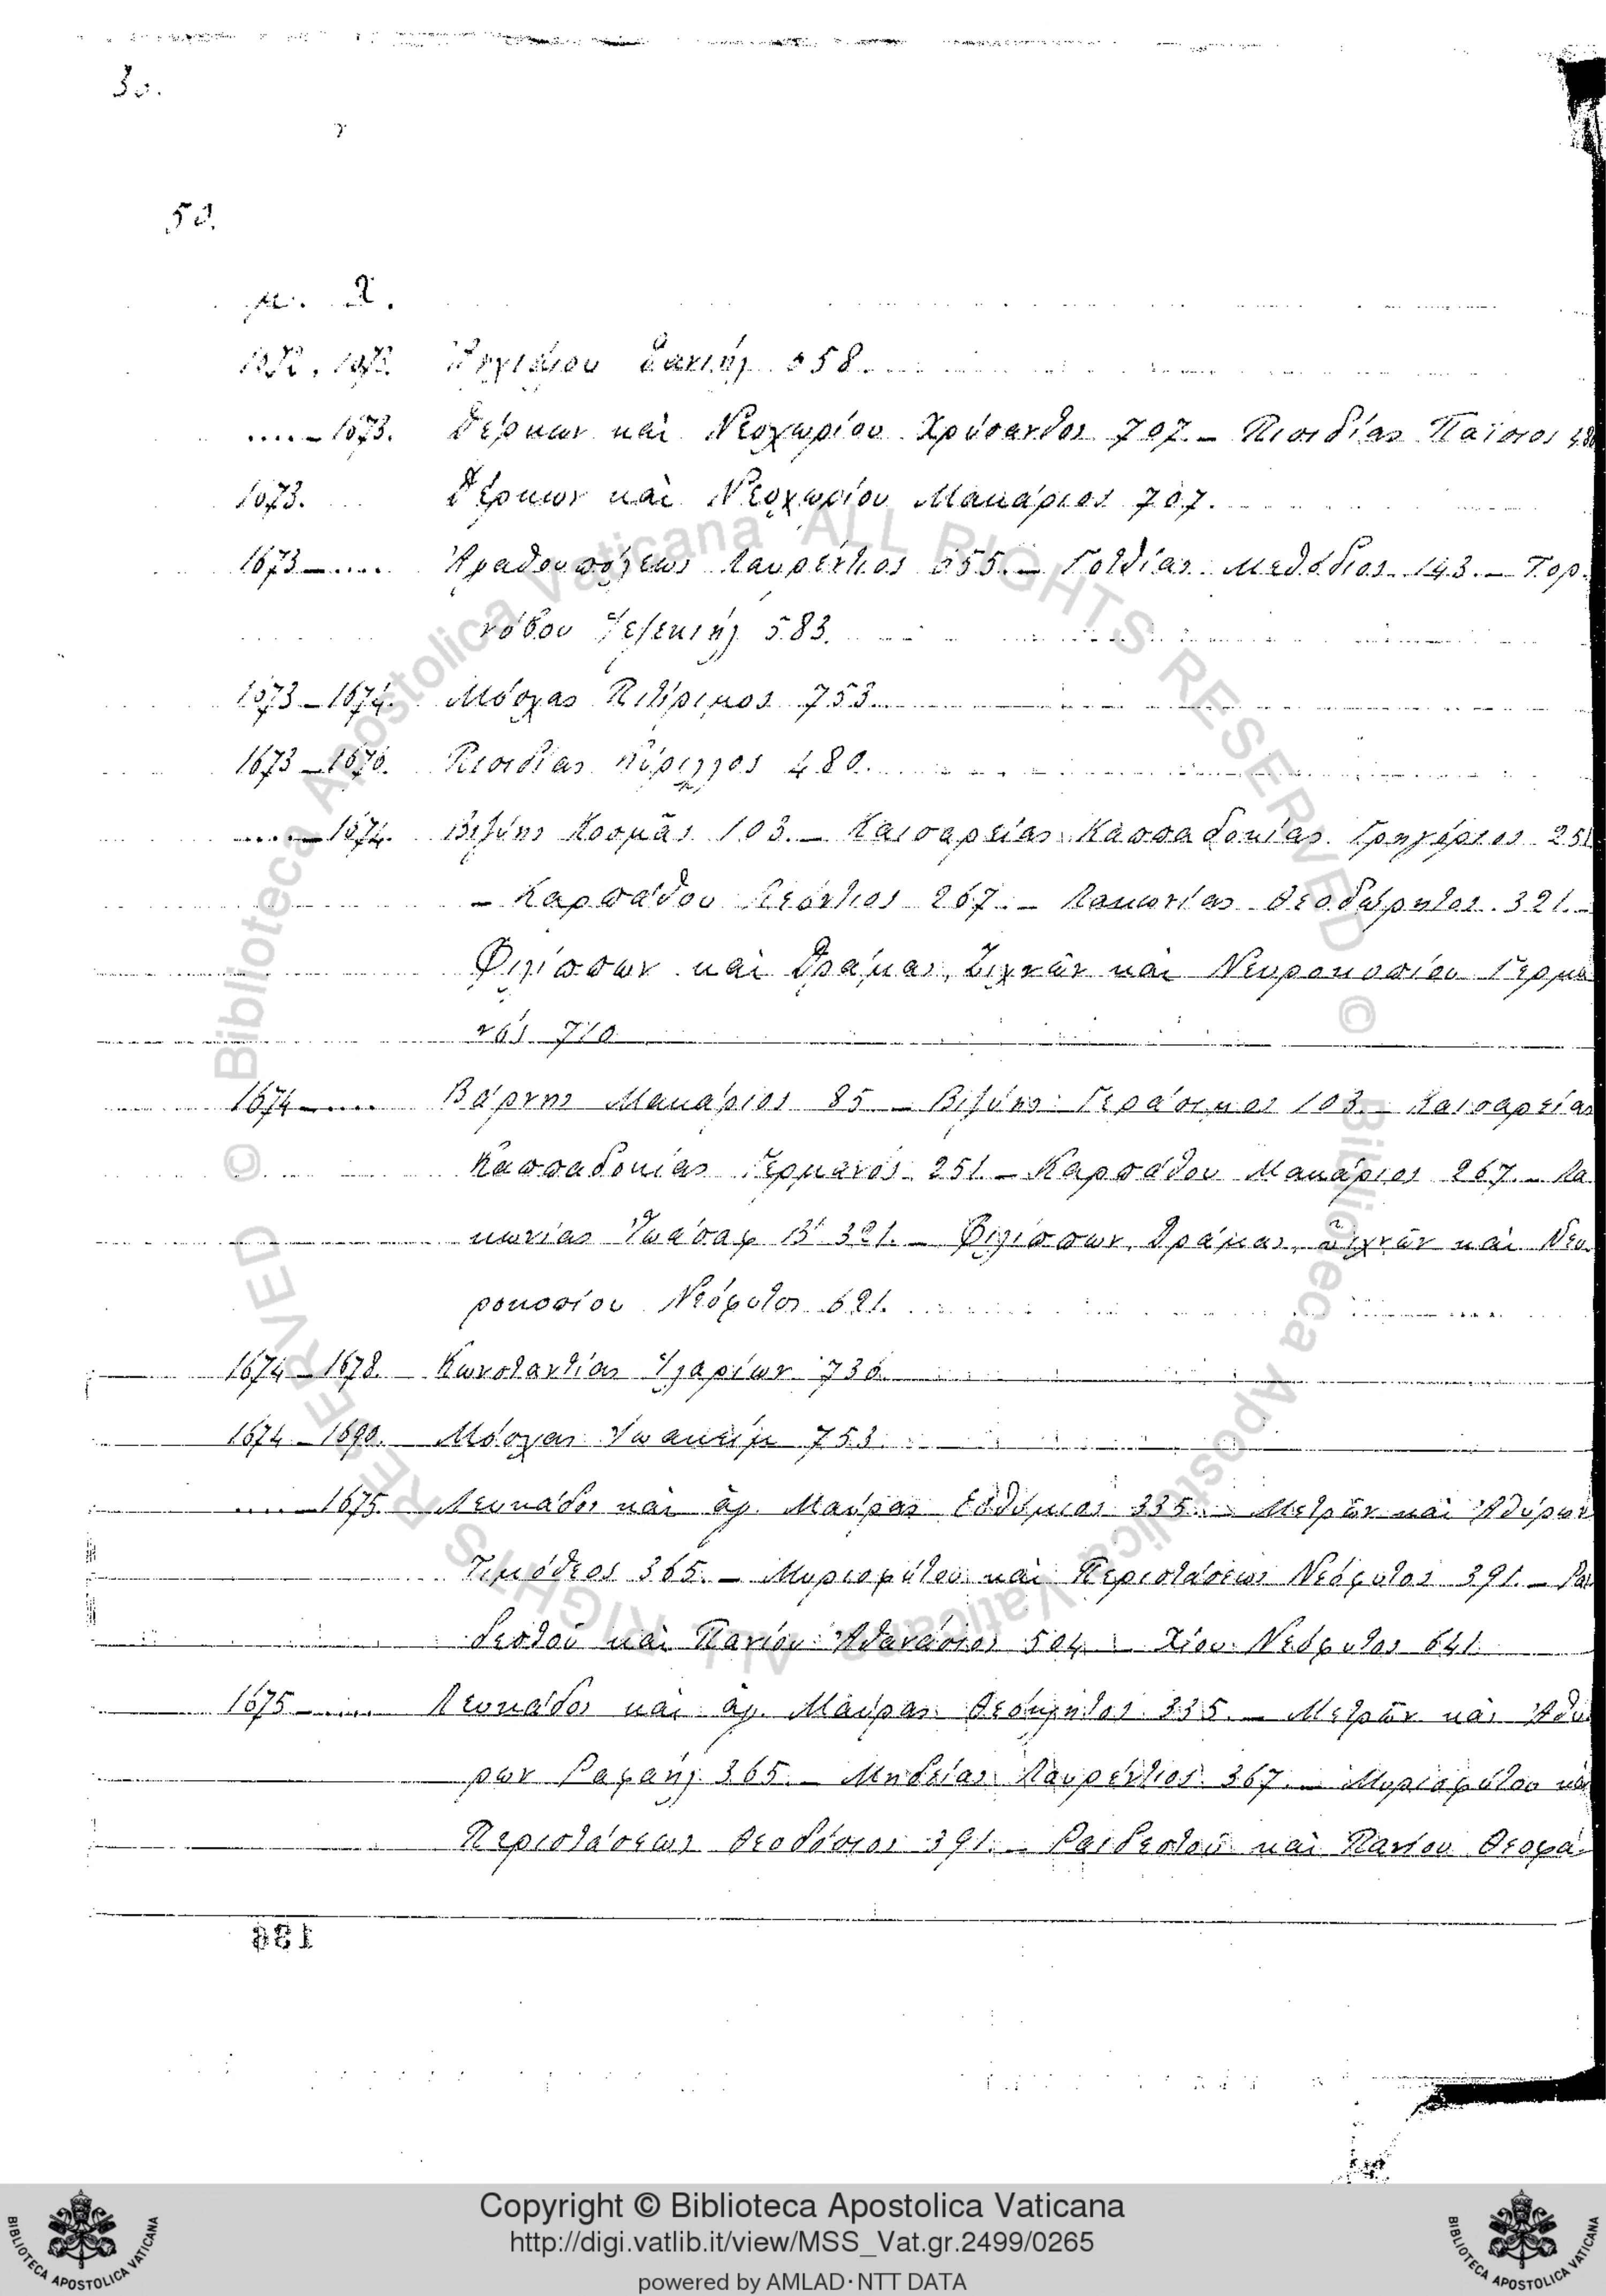 30.
50.
μ. Χ.
1672, 1673. Αἰγιάλου Δανιὴλ 658.
....-1673. Δέρκων καὶ Νεοχωρίου Χρύσανθος 707.- Πισιδίας Παΐσιος 480
1673. Δέρκων καὶ Νεοχωρίου Μακάριος 707.
1673-.... Ἀραδουπόλεως Λαυρέντιος 655.- Γοτθίας Μεθόδιος 143.- Τορ-
νόβου Ἰεζεκιὴλ 583.
1673-1674. Μόσχας Πιτίριμος 753
1673-1676. Πισιδίας Κύριλλος 480.
....-1674. Βιζύης Κοσμᾶς 103.- Καισαρείας Καππαδοκίας Γρηγόριος 251
- Καρπάθου Λεόντιος 267.- Λακωνίας Θεοδώρητος 321.-
Φιλίππων καὶ Δράμας, Ζιχνῶν καὶ Νευροκοπίου Γερμα
νός 710
1674-.... Βάρνης Μακάριος 85 - Βιζύης Γεράσιμος 103.- Καισαρείας
Καππαδοκίας Γερμανός 251.- Καρπάθου Μακάριος 267.- Λα
κωνίας Ἰωάσαφ Β' 321.- Φιλίππων, Δράμας, Ζιχνῶν καὶ Νευ
ροκοπίου Νεόφυτος 621.
1674-1678. Κωνσταντίας Ἱλαρίων 736
1674-1690. Μόσχας Ἰωακεὶμ 753.
....-1675. Λευκάδος καὶ ἁγ. Μαύρας Εὐθύμιος 335.- Μετρῶν καὶ Ἀθύρων
Τιμόθεος 365.- Μυριοφύτου καὶ Περιστάσεως Νεόφυτος 391.- Ῥαι
δεστοῦ καὶ Πανίου Ἀθανάσιος 504.- Χίου Νεόφυτος 641
1675-.... Λευκάδος καὶ ἁγ. Μαύρας Θεόκλητος 335.- Μετρῶν καὶ Ἀθυ
ρων Ῥαφαὴλ 365.- Μηδείας Λαυρέντιος 367.- Μυριοφύτου καὶ
Περιστάσεως Θεοδόσιος 391.- Ῥαιδεστοῦ καὶ Πανίου Θεοφά-
© Biblioteca Apostolica Vaticana ALL RIGHTS RESERVED © Biblioteca Apostolica Vaticana ALL RIGHTS RESERVED
Copyright © Biblioteca Apostolica Vaticana
http://digi.vatlib.it/view/MSS_Vat.gr.2499/0265
powered by AMLAD·NTT DATA
BIBLIOTECA APOSTOLICA VATICANA
BIBLIOTECA APOSTOLICA VATICANA